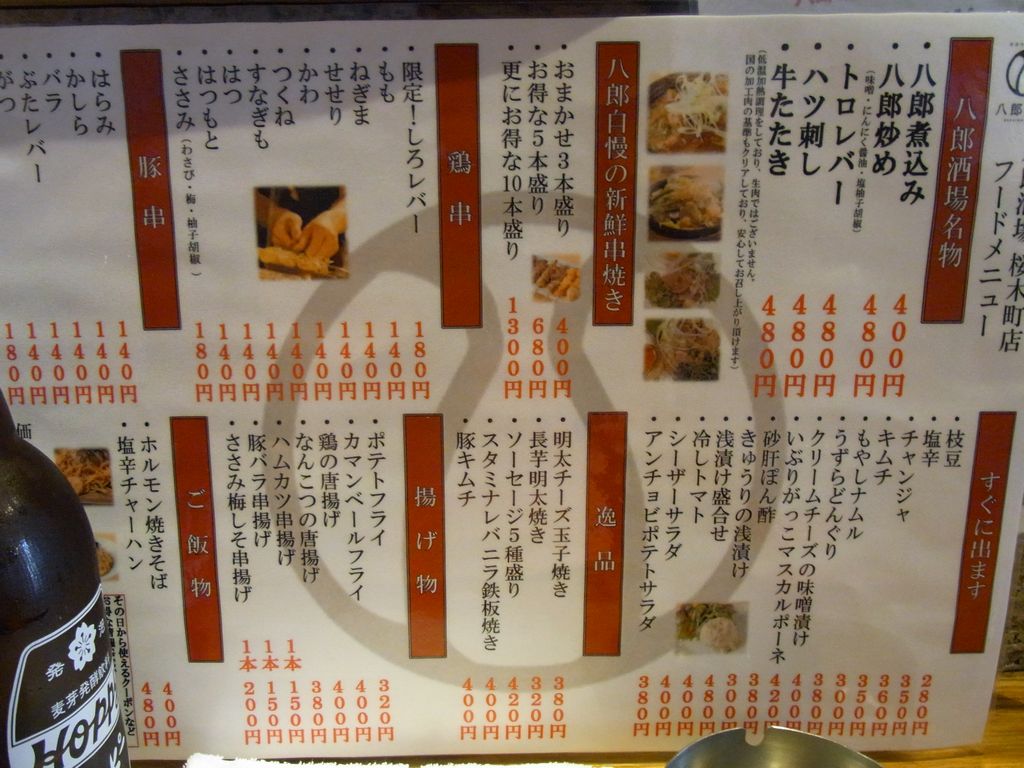 酒場 桜木町店
フードメニュー
八郎酒場名物
・八郎煮込み 400円
・八郎炒め 480円
(味噌・にんにく醤油・塩柚子胡椒)
・トロレバー 480円
・ハツ刺し 480円
・牛たたき 480円
(低温加熱調理をしており、生肉ではございません。
国の加工肉の基準もクリアしており、安心してお召し上がり頂けます)
八郎自慢の新鮮串焼き
・おまかせ3本盛り 400円
・お得な5本盛り 680円
・更にお得な10本盛り 1300円
鶏串
・限定!しろレバー 180円
・もも 140円
・ねぎま 140円
・せせり 140円
・かわ 140円
・つくね 140円
・すなぎも 140円
・はつ 140円
・はつもと 140円
・ささみ(わさび・梅・柚子胡椒) 180円
豚串
・はらみ 140円
・かしら 140円
・バラ 140円
・ぶたレバー 140円
・がつ 140円
180円
すぐに出ます
・枝豆 280円
・塩辛 350円
・チャンジャ 360円
・キムチ 350円
・もやしナムル 300円
・うずらどんぐり 380円
・クリームチーズの味噌漬け 400円
・いぶりがっこマスカルポーネ 420円
・砂肝ぽん酢 380円
・きゅうりの浅漬け 300円
・浅漬け盛合せ 480円
・冷しトマト 400円
・シーザーサラダ 400円
・アンチョビポテトサラダ 380円
逸品
・明太チーズ玉子焼き 380円
・長芋明太焼き 320円
・ソーセージ5種盛り 420円
・スタミナレバニラ鉄板焼き 400円
・豚キムチ 400円
揚げ物
・ポテトフライ 320円
・カマンベールフライ 400円
・鶏の唐揚げ 400円
・なんこつの唐揚げ 380円
・ハムカツ串揚げ 1本 150円
・豚バラ串揚げ 1本 150円
・ささみ梅しそ串揚げ 1本 200円
ご飯物
・ホルモン焼きそば 400円
・塩辛チャーハン 480円
その日から使えるクーポンなど
価
発
麦芽発酵飲
HOPP